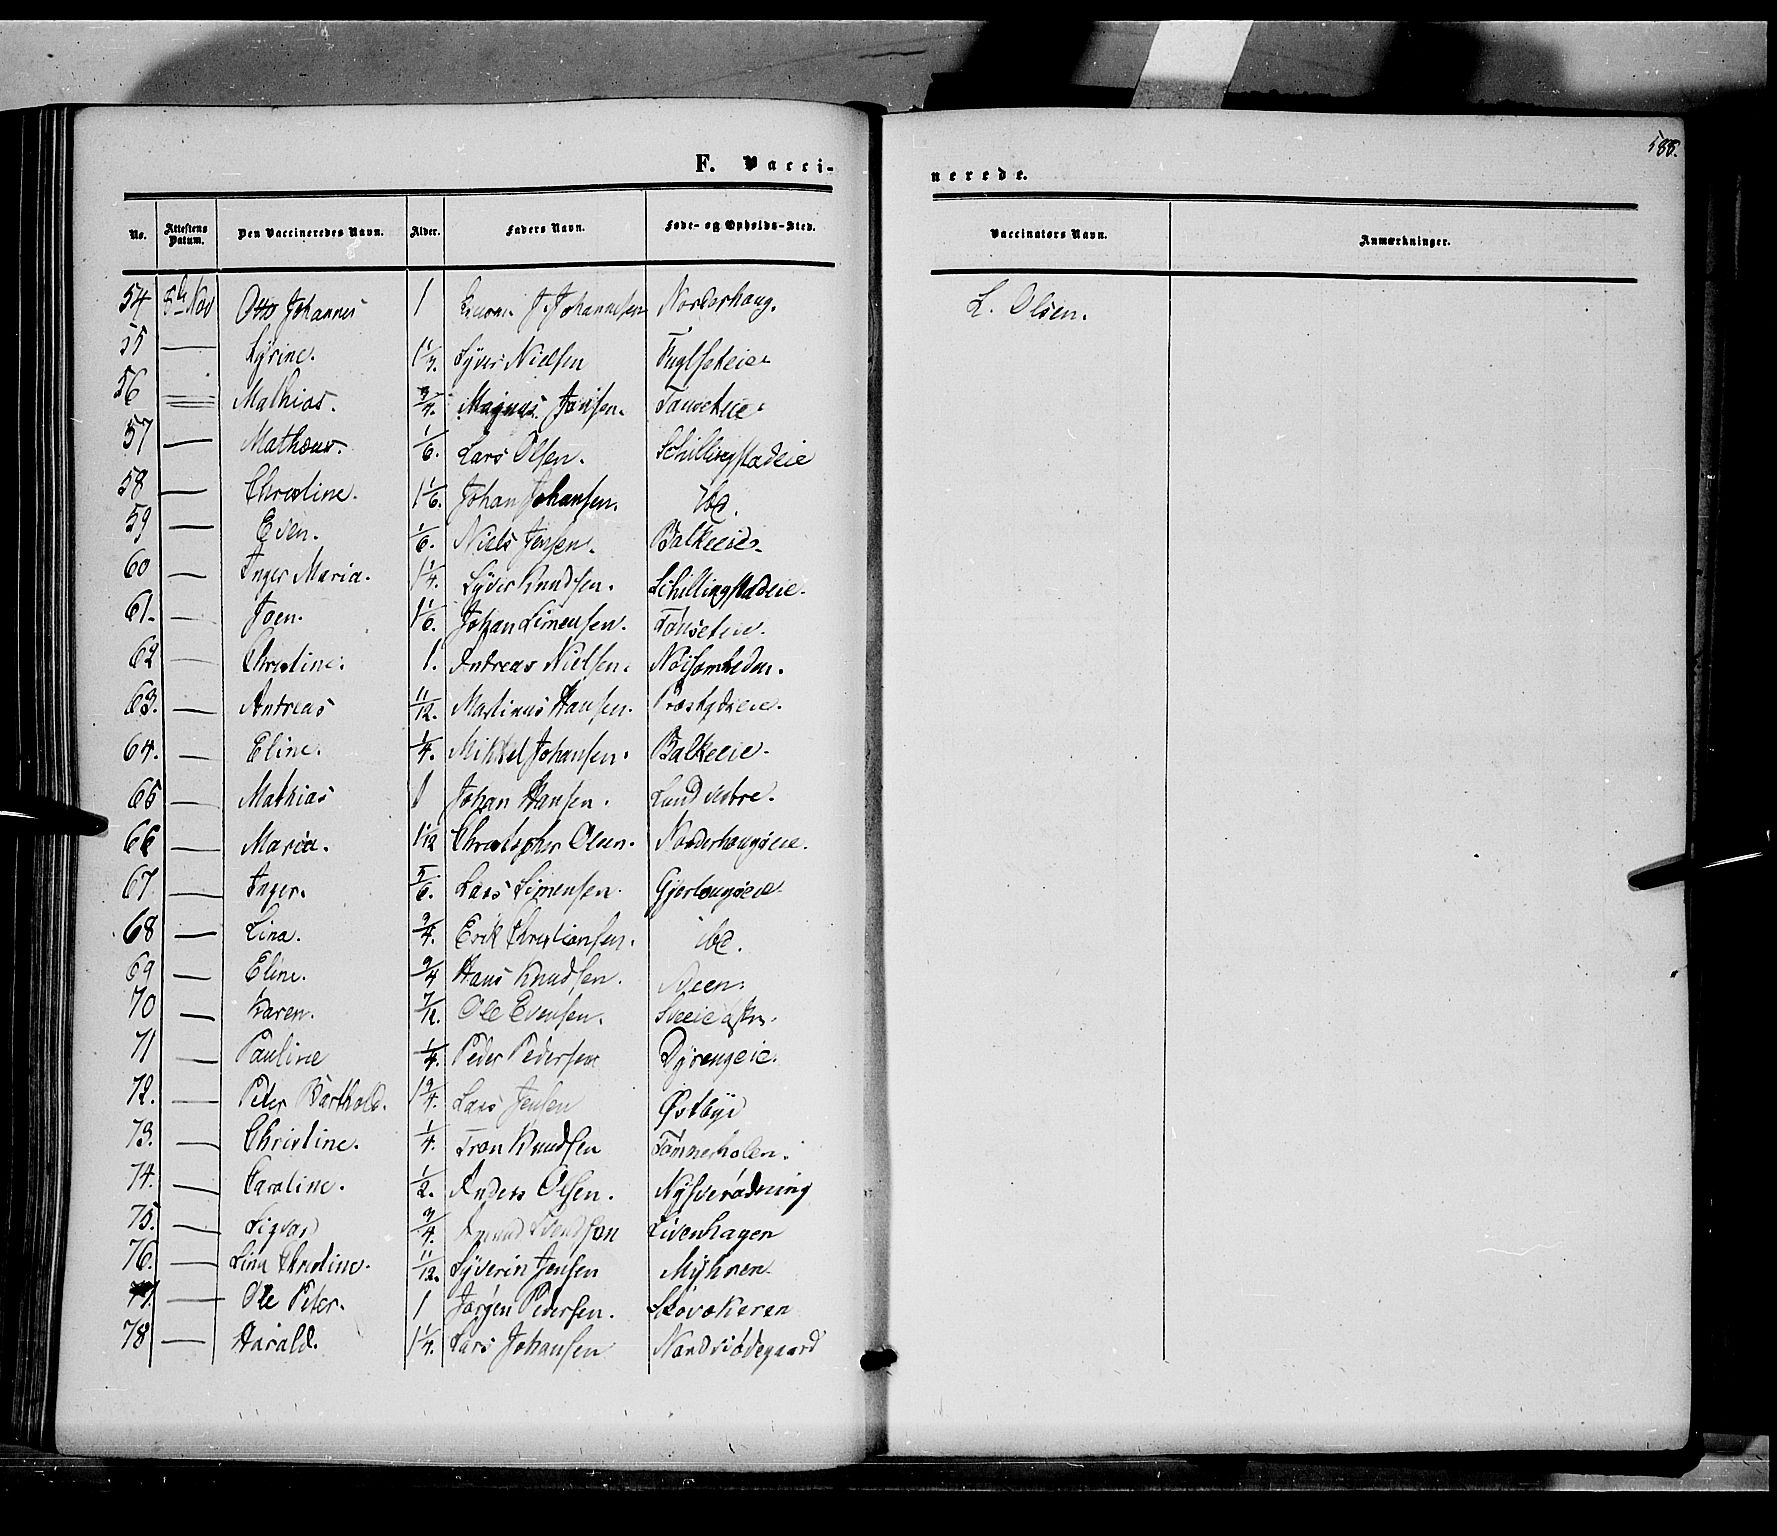 588.
F. Vacci-
nerede.
No. Attestens Datum. Den Vaccineredes Navn. Alder. Faders Navn. Føde- og Opholds-Sted. Vaccinators Navn. Anmærkninger.
54 5te Nov Otto Johannes 1 J. Johannesen Norderhaug. L. Olsen.
55 — Syrine. 1 1/3. Syver Nielsen Fuglseteie
56 = Mathias. 3/4. Magnus Jonsen. Tønseteie.
57 — Matheus. 1/6. Lars Olsen. Schillingstadeie
58 — Christine. 1 1/6. Johan Johansen. ibd.
59 — Even. 1/6. Niels Jensen. Balkeeie.
60 — Inger Maria. 1 1/4. Syver Knudsen. Schillingstadeie.
61. — Joen. 1 1/6. Johan Simensen. Tønseteie.
62 — Christine. 1. Andreas Nielsen. Nøisomheden.
63. — Andreas 11/12. Martinus Hansen. Præstgdseie.
64. — Eline. 1/4. Mikkel Johansen. Balkeeie.
65 — Mathias 1 Johan Hansen. Lund vestre.
66 — Maria. 1 1/12 Christopher Olsen. Norderhaugseie.
67 — Inger. 5/6. Lars Simensen. Gjerlaugseie
68 — Lina. 3/4. Erik Christiansen. ibd.
69 — Eline. 3/4 Hans Knudsen. Aeen.
70 — Karen. 7/12. Ole Evensen. Sveeie østre.
71 — Pauline 1/4. Peder Pedersen Dyrengeie.
72. — Peter Barthold. 1 3/4. Lars Jensen Østbye
73. — Christine. 1/4. Tron Knudsen Tømmerholen.
74. — Caroline. 1/2. Anders Olsen. Nysverødning
75. — Sigvar 3/4. Amund Svendsen Livenhagen
76. — Lina Christine. 11/12. Syverin Jensen Myhren
77. — Ole Peter. 1 Jørgen Pedersen. Skovakeren
78 — Harald. 1 1/4. Lars Johansen Nordsvødegaard